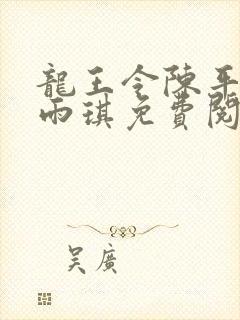 龍王令陳平
雨琪免費閱
吳廣